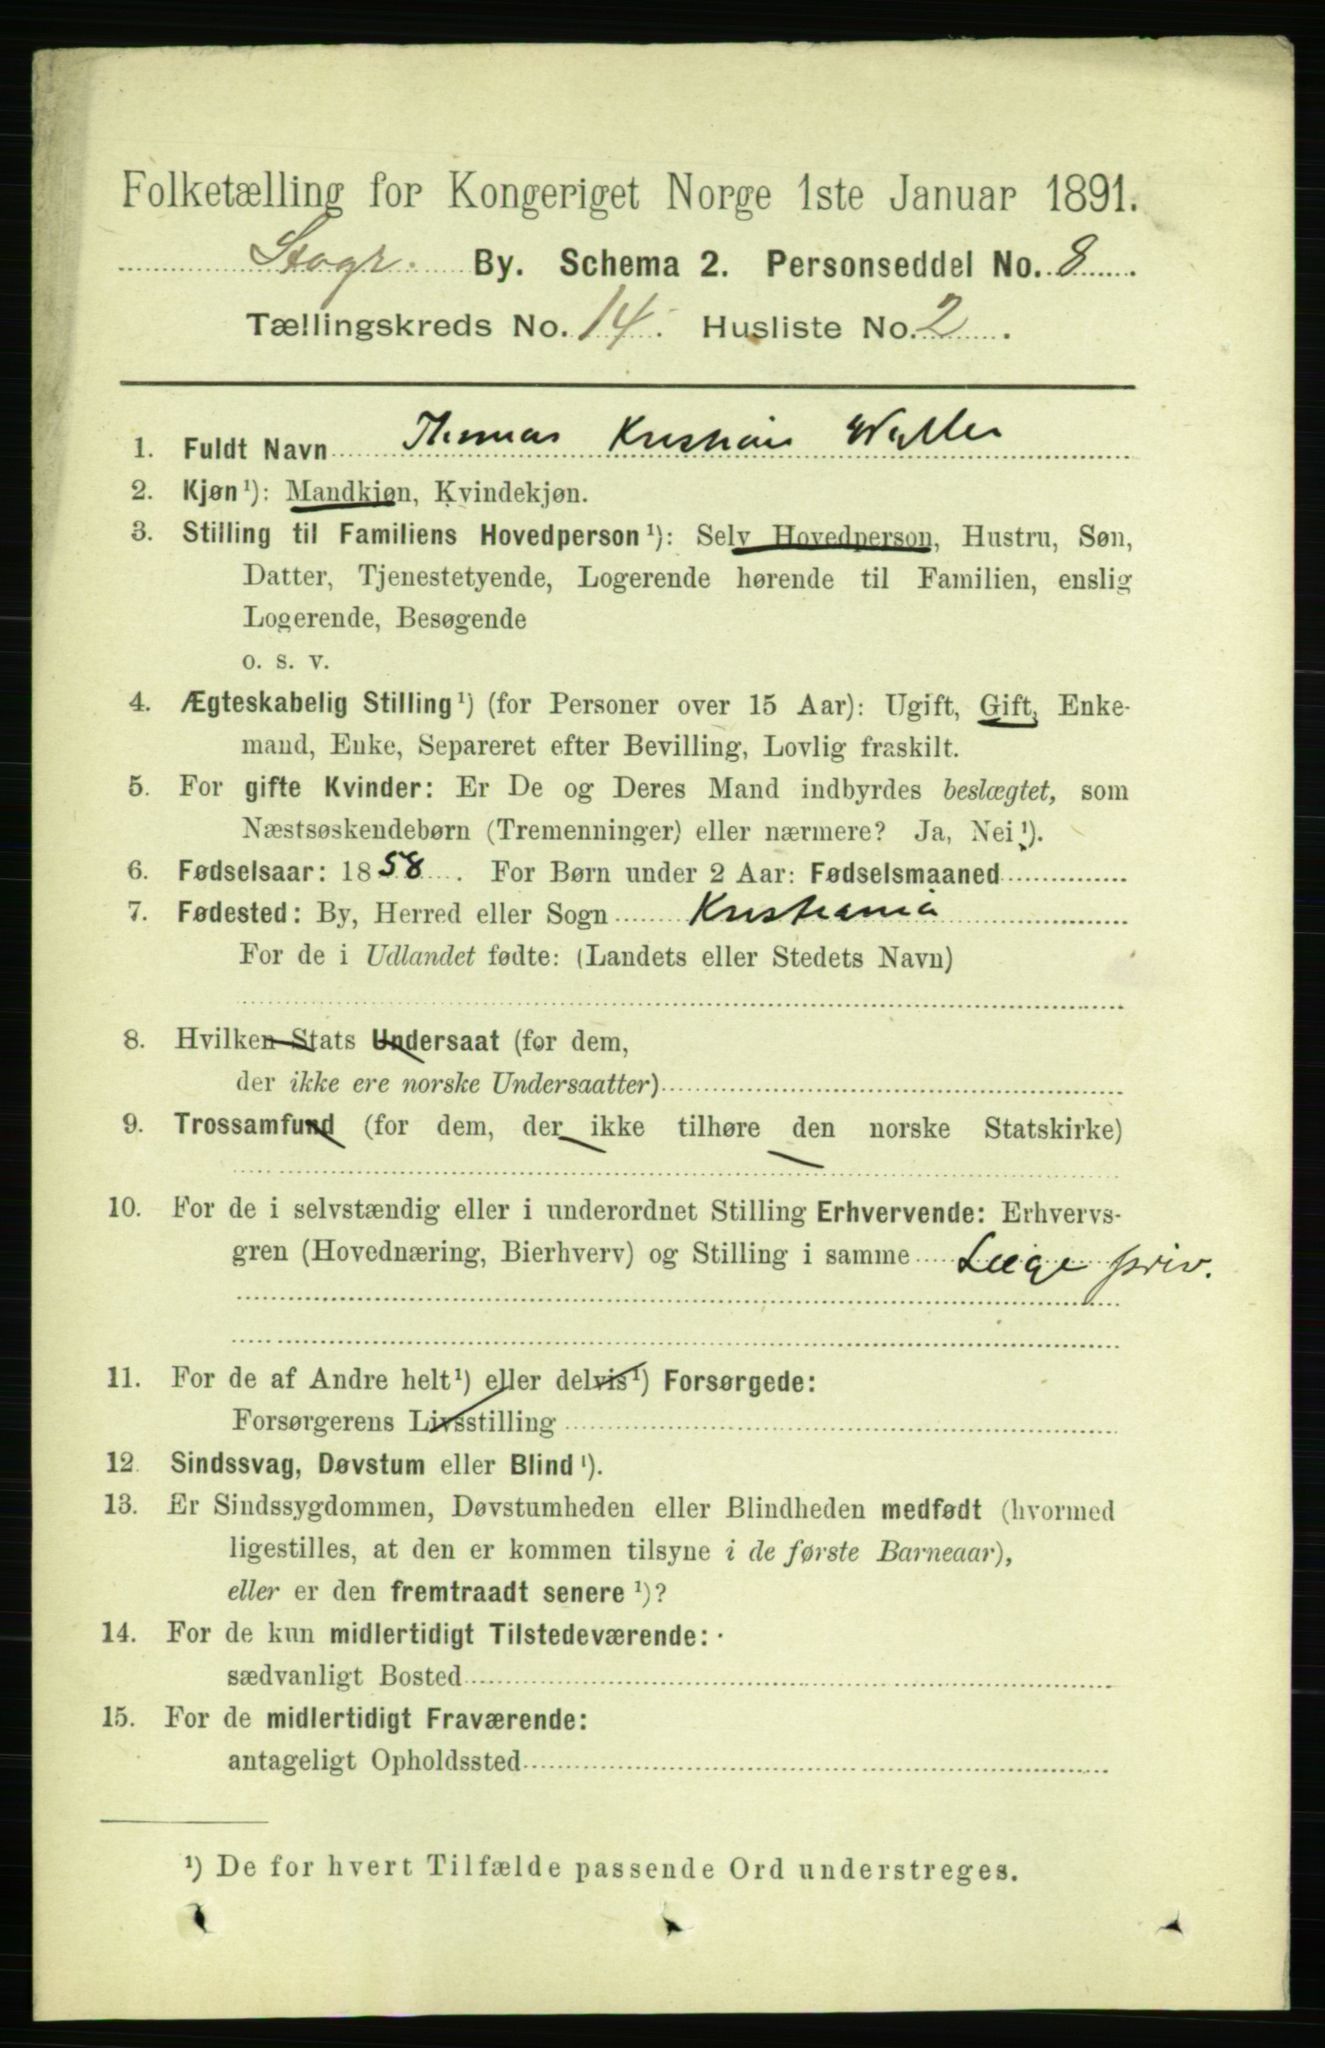 Folketælling for Kongeriget Norge 1ste Januar 1891.
By. Schema 2. Personseddel No. 8
Tællingskreds No. 14. Husliste No. 2.
1. Fuldt Navn Thomas Kristian Wyller
2. Kjøn¹): Mandkjøn, Kvindekjøn.
3. Stilling til Familiens Hovedperson¹): Selv Hovedperson, Hustru, Søn,
Datter, Tjenestetyende, Logerende hørende til Familien, enslig
Logerende, Besøgende
o. s. v.
4. Ægteskabelig Stilling¹) (for Personer over 15 Aar): Ugift, Gift, Enke-
mand, Enke, Separeret efter Bevilling, Lovlig fraskilt.
5. For gifte Kvinder: Er De og Deres Mand indbyrdes beslægtet, som
Næstsøskendebørn (Tremenninger) eller nærmere? Ja, Nei¹).
6. Fødselsaar: 1858. For Børn under 2 Aar: Fødselsmaaned
7. Fødested: By, Herred eller Sogn Kristiania
For de i Udlandet fødte: (Landets eller Stedets Navn)
8. Hvilken Stats Undersaat (for dem,
der ikke ere norske Undersaatter)
9. Trossamfund (for dem, der ikke tilhøre den norske Statskirke)
10. For de i selvstændig eller i underordnet Stilling Erhvervende: Erhvervs-
gren (Hovednæring, Bierhverv) og Stilling i samme Læge priv.
11. For de af Andre helt¹) eller delvis¹) Forsørgede:
Forsørgerens Livsstilling
12. Sindssvag, Døvstum eller Blind¹).
13. Er Sindssygdommen, Døvstumheden eller Blindheden medfødt (hvormed
ligestilles, at den er kommen tilsyne i de første Barneaar),
eller er den fremtraadt senere¹)?
14. For de kun midlertidigt Tilstedeværende:
sædvanligt Bosted
15. For de midlertidigt Fraværende:
antageligt Opholdssted
¹) De for hvert Tilfælde passende Ord understreges.